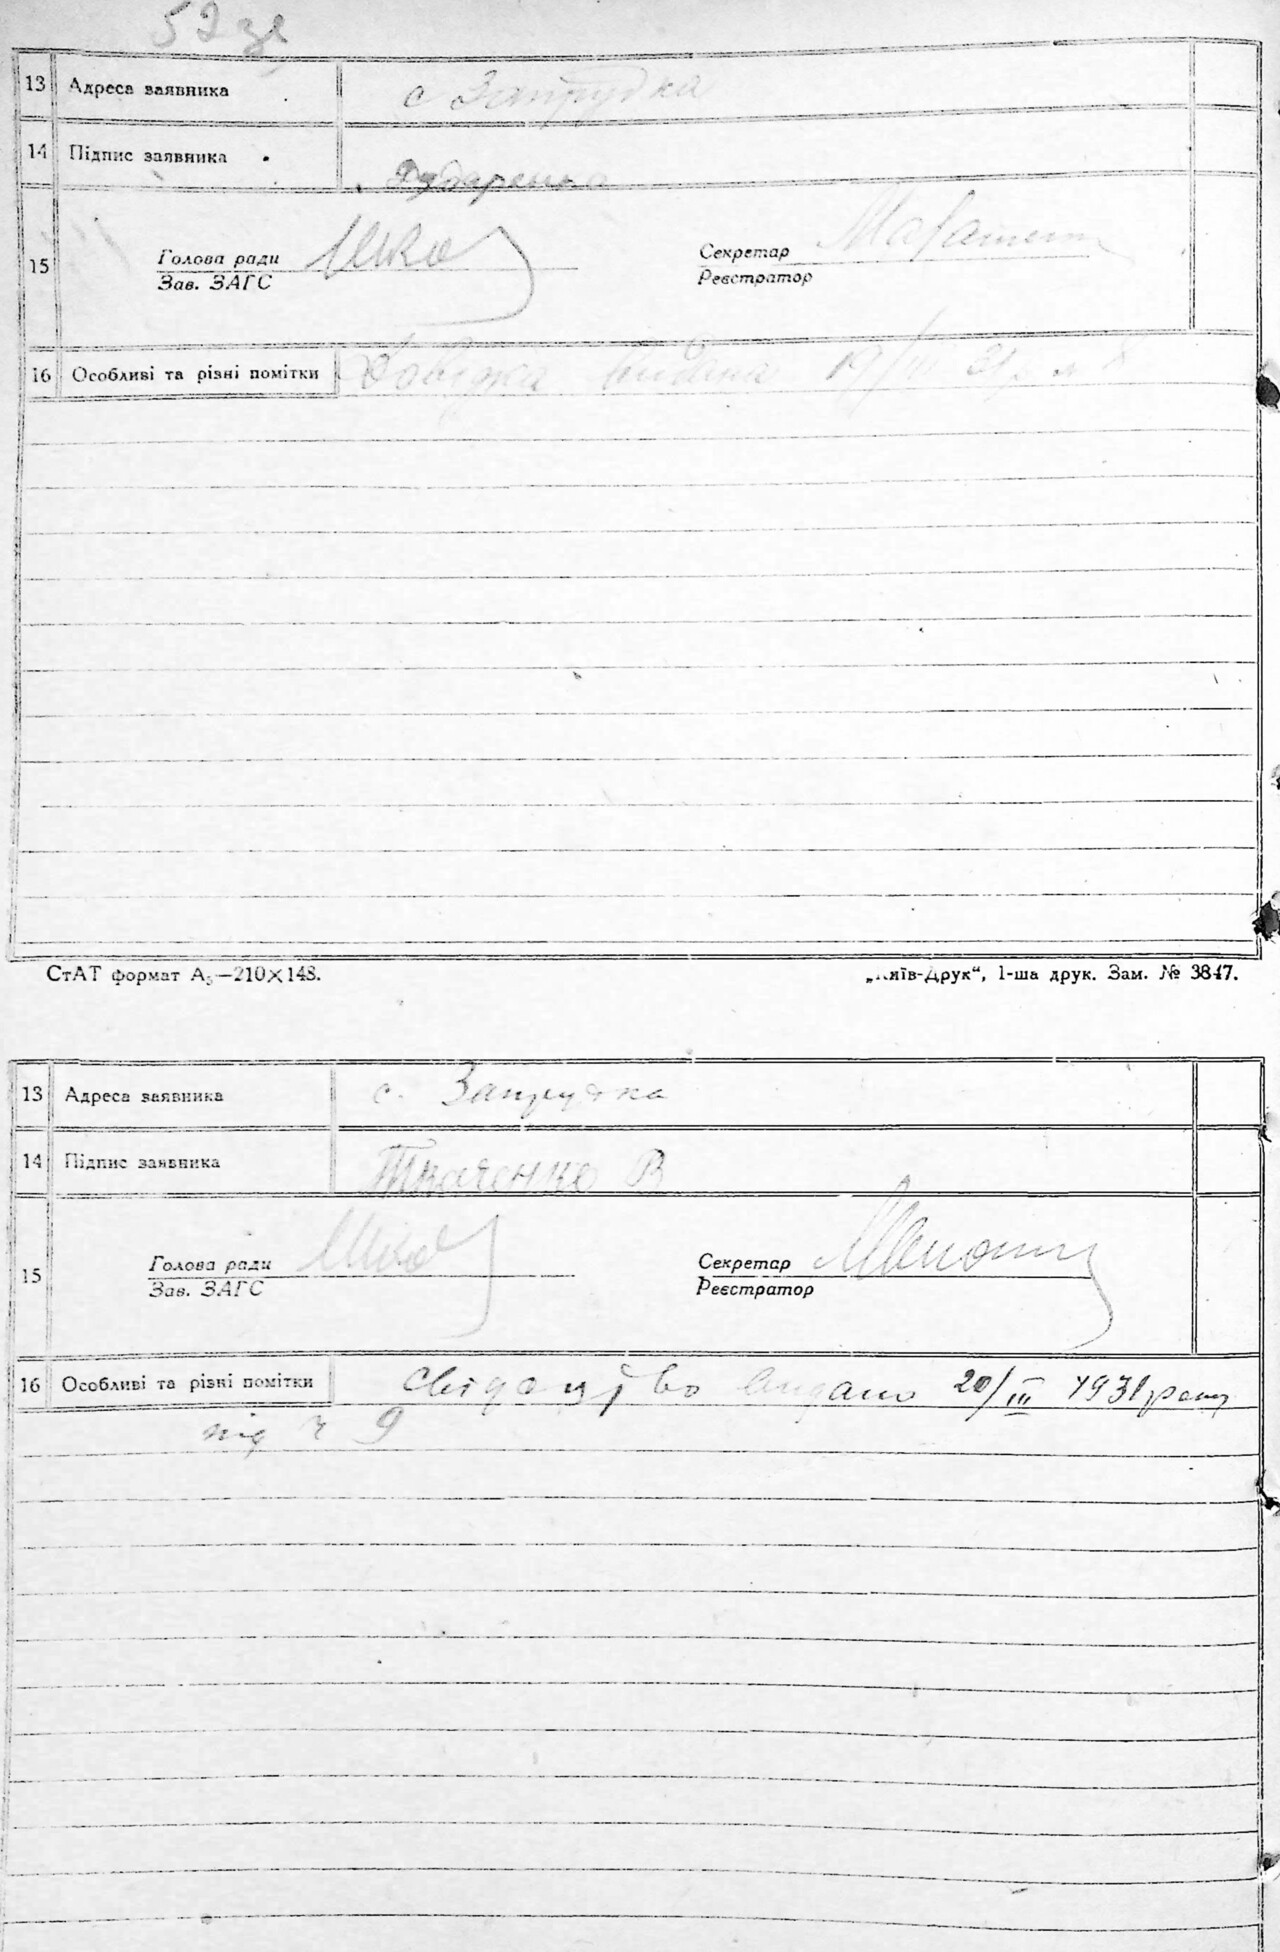 52 зв
13 Адреса заявника с Запрудка
14 Підпис заявника
15 Голова ради Секретар
Зав. ЗАГС Реєстратор
16 Особливі та різні помітки Довідка видана 19/III 31 р № 8
СтАТ формат А₅—210×148. „Київ-Друк“, 1-ша друк. Зам. № 3847.
13 Адреса заявника с. Запрудка
14 Підпис заявника Ткаченко В
15 Голова ради Секретар
Зав. ЗАГС Реєстратор
16 Особливі та різні помітки Свідоцтво видано 20/III 1931 року
під ч 9